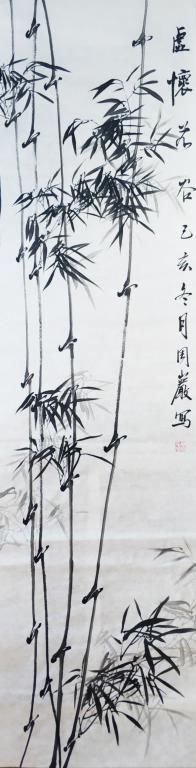 虚懷若谷己亥冬月周巖寫